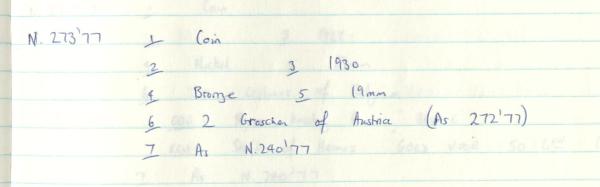 N. 273'77 1 Coin
2 3 1930
4 Bronze 5 19mm
6 2 Groschen of Austria (As 272'77)
7 As N.240'77